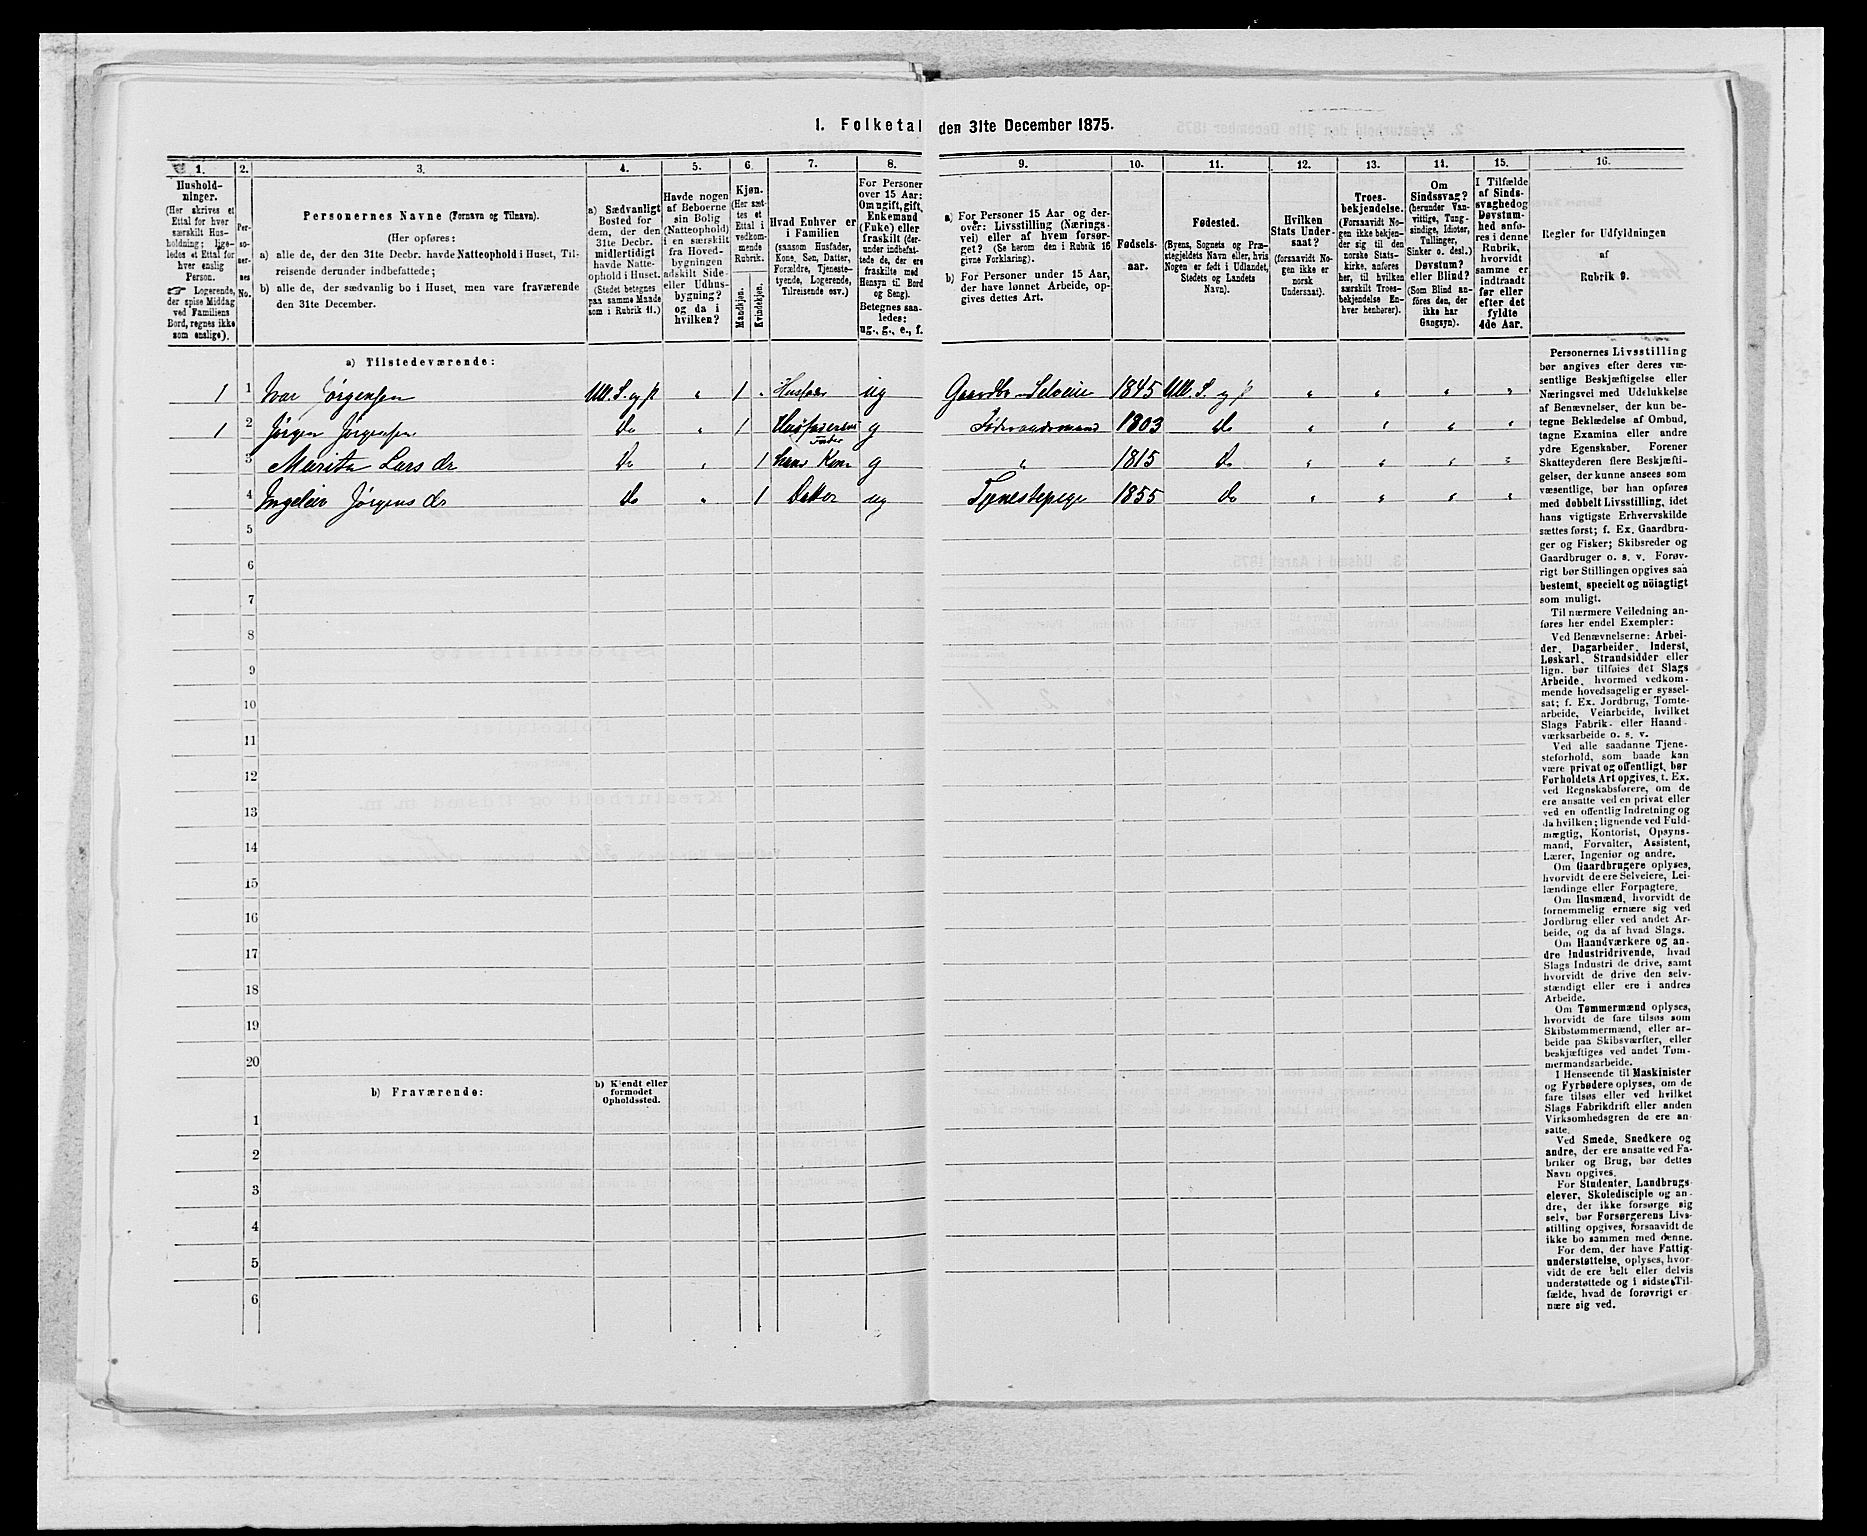 1. Folketal den 31te December 1875.
1. 2. 3. 4. 5. 6. 7. 8. 9. 10. 11. 12. 13. 14. 15. 16.
Hushold-
ninger.
(Her skrives et
Ettal for hver
særskilt Hus-
holdning; lige-
ledes et Ettal for
hver enslig
Person.
☞ Logerende,
der spise Middag
ved Familiens
Bord, regnes ikke
som enslige).
Per-
so-
ner-
nes
No.
Personernes Navne (Fornavn og Tilnavn).
(Her opføres:
a) alle de, der den 31te Decbr. havde Natteophold i Huset, Til-
reisende derunder indbefattede;
b) alle de, der sædvanlig bo i Huset, men vare fraværende
den 31te December.
a) Sædvanligt
Bosted for
dem, der den
31te Decbr.
midlertidigt
havde Natte-
ophold i Huset.
(Stedet betegnes
paa samme Maade
som i Rubrik 11.)
Havde nogen
af Beboerne
sin Bolig
(Natteophold)
i en særskilt
fra Hoved-
bygningen
adskilt Side-
eller Udhus-
bygning?
og da i
hvilken?
Kjøn.
(Her sæt-
tes et
Ettal i
vedkom-
mende
Rubrik.
Mandkjøn.
Kvindekjøn.
Hvad Enhver er
i Familien
(saasom Husfader,
Kone, Søn, Datter,
Forældre, Tjeneste-
tyende, Logerende,
Tilreisende osv.)
For Personer
over 15 Aar:
Om ugift, gift,
Enkemand
(Enke) eller
fraskilt (der-
under indbefat-
tede de, der ere
fraskilte med
Hensyn til Bord
og Seng).
Betegnes saa-
ledes:
ug., g., e., f.
a) For Personer 15 Aar og der-
over: Livsstilling (Nærings-
vei) eller af hvem forsør-
get? (Se herom den i Rubrik 16
givne Forklaring).
b) For Personer under 15 Aar,
der have lønnet Arbeide, op-
gives dettes Art.
Fødsels-
aar.
Fødested.
(Byens, Sognets og Præ-
stegjeldets Navn eller, hvis
Nogen er født i Udlandet,
Stedets og Landets
Navn).
Hvilken
Stats Under-
saat?
(forsaavidt No-
gen ikke er
norsk
Undersaat).
Troes-
bekjendelse.
(Forsaavidt No-
gen ikke bekjen-
der sig til den
norske Stats-
kirke, anføres
her, til hvilken
særskilt Troes-
bekjendelse En-
hver henhører).
Om
Sindssvag?
(herunder Van-
vittige, Tung-
sindige, Idioter,
Tullinger,
Sinker o. desl.)
Døvstum?
eller Blind?
(Som Blind an-
føres den, der
ikke har
Gangsyn).
I Tilfælde
af Sinds-
svaghed og
Døvstum-
hed anfø-
res i denne
Rubrik,
hvorvidt
samme er
indtraadt
før eller
efter det
fyldte
4de Aar.
Regler for Udfyldningen
af
Rubrik 9.
a) Tilstedeværende:
1 1 Ivar Jørgensen Ull. S. og P " 1 " Husfader ug Gaardbr. Selveier 1845 Ull. S. og P " " " "
1 2 Jørgen Jørgensen Do " 1 Husfaderens Fader g Føderaadsmand 1803 Do " " " "
3 Marita Lars dr Do " 1 hans Kone g " 1815 Do " " " "
4 Ingeleiv Jørgens dr Do " 1 Datter ug Tjenestepige 1855 Do " " " "
5
6
7
8
9
10
11
12
13
14
15
16
17
18
19
20
b) Fraværende:
b) Kjendt eller
formodet
Opholdssted.
1
2
3
4
5
6
Personernes Livsstilling
bør angives efter deres væ-
sentlige Beskjæftigelse eller
Næringsvei med Udelukkelse
af Benævnelser, der kun be-
tegne Beklædelse af Ombud,
tagne Examina eller andre
ydre Egenskaber. Forener
Skatteyderen flere Beskjæfti-
gelser, der kunne ansees som
væsentlige, bør han opføres
med dobbelt Livsstilling, idet
hans vigtigste Erhvervskilde
sættes først; f. Ex. Gaardbru-
ger og Fisker; Skibsreder og
Gaardbruger o. s. v. Forøv-
rigt bør Stillingen opgives saa
bestemt, specielt og nöiagtigt
som muligt.
Til nærmere Veiledning an-
føres her endel Exempler:
Ved Benævnelserne: Arbei-
der, Dagarbeider, Inderst,
Løskarl, Strandsidder eller
lign. bør tilføies det Slags
Arbeide, hvormed vedkom-
mende hovedsagelig er syssel-
sat; f. Ex. Jordbrug, Tomte-
arbeide, Veiarbeide, hvilket
Slags Fabrik- eller Haand-
værksarbeide o. s. v.
Ved alle saadanne Tjene-
steforhold, som baade kan
være privat og offentligt, bør
Forholdets Art opgives, t. Ex.
ved Regnskabsførere, om de
ere ansatte ved en privat eller
ved en offentlig Indretning og
da hvilken; lignende ved Fuld-
mægtig, Kontorist, Opsyns-
mand, Forvalter, Assistent,
Lærer, Ingeniør og andre.
Om Gaardbrugere oplyses,
hvorvidt de ere Selveiere, Lei-
lændinge eller Forpagtere.
Om Husmænd, hvorvidt de
fornemmelig ernære sig ved
Jordbrug eller ved andet Ar-
beide, og da af hvad Slags.
Om Haandværkere og an-
dre Industridrivende, hvad
Slags Industri de drive, samt
hvorvidt de drive den selv-
stændigt eller ere i andres
Arbeide.
Om Tømmermænd oplyses,
hvorvidt de fare tilsøs som
Skibstømmermænd, eller ar-
beide paa Skibsværfter, eller
beskjæftiges ved andet Tøm-
mermandsarbeide.
I Henseende til Maskinister
og Fyrbødere oplyses, om de
fare tilsøs eller ved hvilket
Slags Fabrikdrift eller anden
Virksomhedsgren de ere an-
satte.
Ved Smede, Snedkere og
andre, der ere ansatte ved Fa-
briker og Brug, bør dettes
Navn opgives.
For Studenter, Landbrugs-
elever, Skoledisciple og an-
dre, der ikke forsørge sig
selv, bør Forsørgerens Livs-
stilling opgives, forsaavidt de
ikke bo sammen med denne.
For dem, der have Fattig-
understøttelse, oplyses, hvor-
vidt de ere helt eller delvis
understøttede og i sidste Til-
fælde, hvad de forøvrigt er-
nære sig ved.